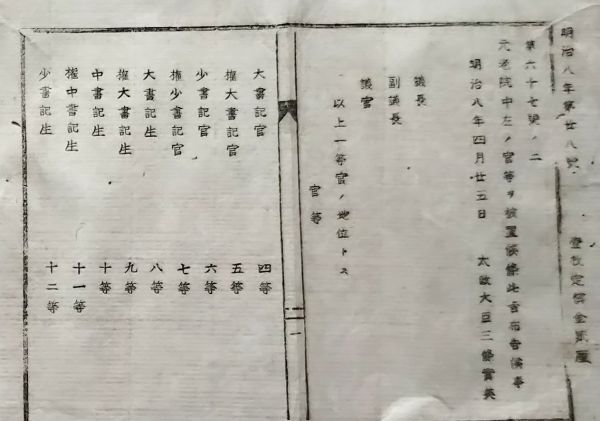 明治八年第廿八號
壹枚定價金貳厘
第六十七號ノ二
元老院中左ノ官等ヲ被置候條此旨布告候事
明治八年四月廿五日 太政大臣三條實美
議長
副議長
議官
以上一等官ノ地位トス
官等
大書記官 四等
權大書記官 五等
少書記官 六等
權少書記官 七等
大書記生 八等
權大書記生 九等
中書記生 十等
權中書記生 十一等
少書記生 十二等
一